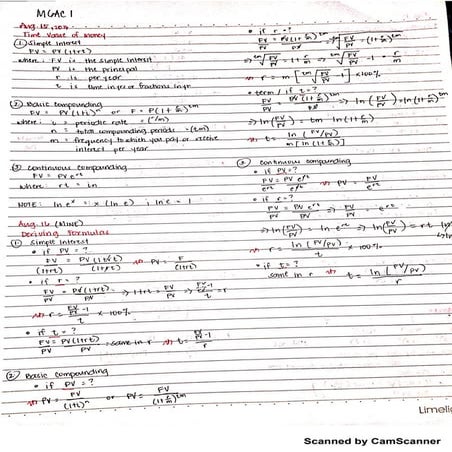 MGAC 1
Time Value of Money
① Simple Interest
FV = PV(1+rt)
where: FV is the simple interest
PV is the principal
r is per year
t is time in yr or fractions in yr
② Basic compounding
FV = PV(1+i)ⁿ or F = P(1+r/m)^tm
where: i = periodic rate = (r/m)
n = total compounding periods = (tm)
m = frequency to which you pay or receive
interest per year
③ continuous compounding
FV = PV e^rt
where: rt = in
NOTE: ln eˣ = x (ln e) ; ln e = 1
Aug. 16 (MINE)
Deriving Formulas
① Simple Interest
• if PV = ?
FV/(1+rt) = PV(1+rt)/(1+rt) PV = F/(1+rt)
• if r = ?
FV/PV = PV(1+rt)/PV ⇒ 1+rt = FV/PV
r = (FV/PV - 1)/t × 100%
• if t = ?
FV/PV = PV(1+rt)/PV = same in r t = (FV/PV - 1)/r
② Basic compounding
• if PV = ?
PV = FV/(1+i)ⁿ or PV = FV/(1+r/m)^tm
• if r = ?
r = m [ᵗᵐ√(FV/PV) - 1] × 100%
• term / if t = ?
FV/PV = PV(1+r/m)^tm/PV ⇒ ln(FV/PV) = ln(1+r/m)^tm
⇒ ln(FV/PV) = tm ln(1+r/m)
t = ln(FV/PV)/m[ln(1+r/m)]
③ continuous compounding
• if PV = ?
FV/e^rt = PV e^rt/e^rt PV = FV/e^rt
• if r = ?
FV/PV = PV e^rt/PV ⇒ FV/PV = e^rt
⇒ ln(FV/PV) = ln e^rt ⇒ ln(FV/PV) = rt
r = ln(FV/PV)/t × 100%
• if t = ?
same in r t = ln(FV/PV)/r
Limeli
Scanned by CamScanner